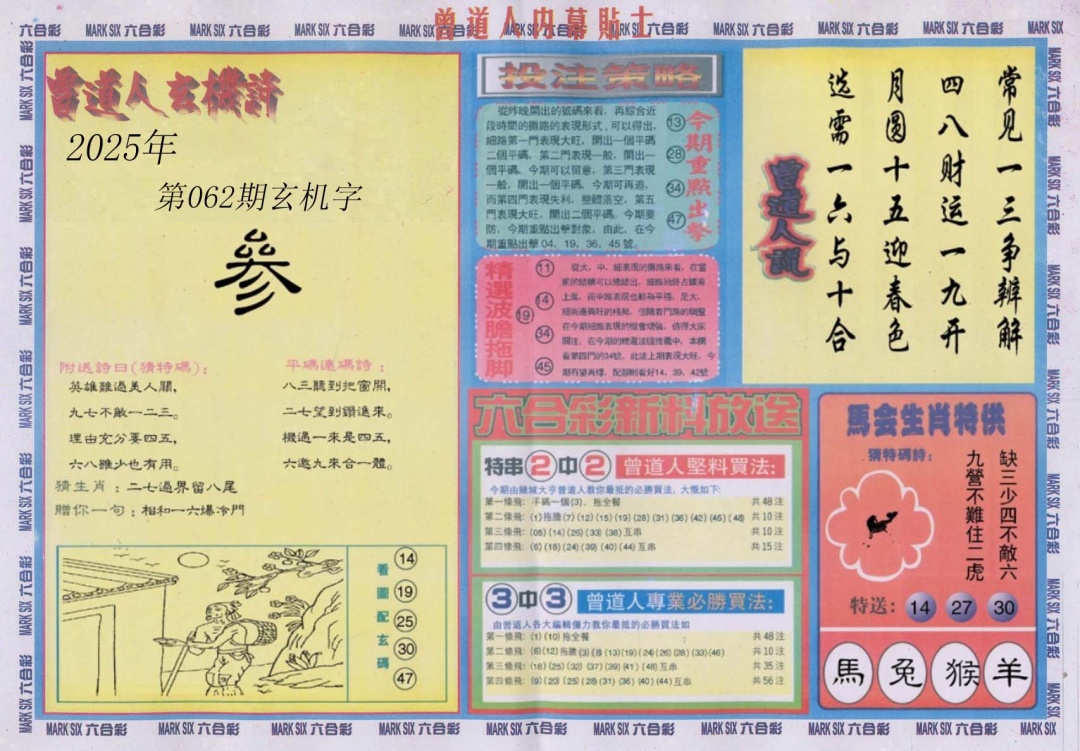 曾道人内幕貼士
MARK SIX 六合彩
曾道人玄機詩
2025年
第062期玄机字
參
附送詩曰(猜特碼):
英雄難過美人關,
九七不敵一二三。
理由充分要四五,
六八雖少也有用。
平碼連碼詩:
八三聽到把窗開,
二七望到鑽進來。
機遇一來是四五,
六邀九來合一體。
猜生肖:二七過界留八尾
贈你一句:相和一六爆冷門
看圖配玄碼
14
19
25
30
47
投注策略
從昨晚開出的號碼來看,再綜合近
段時間的攤路的表現形式,可以得出,
細路第一門表現大旺,開出一個平碼
二個平碼,第二門表現一般,開出一
個平碼,今期可以留意,第三門表現
一般,開出一個平碼,今期可再追,
而第四門表現失利,整體落空,第五
門表現大旺,開出二個平碼,今期要
防,今期重點出擊對象,由此,在今
期重點出擊04、19、36、45號。
今期重點出擊
13
28
34
47
精選波膽拖脚
11
14
19
34
45
從大、中、細表現的攤路來看,在當
上落,而中路表現也較為平穩,是大、
在今期細路表現的機會增強,值得大家
關注,在今期的精選波膽推薦中,本欄
看第四門的34號,此波上期表現大旺,今
期有望再爆,配腳則看好14、39、42號
六合彩新料放送
特串2中2 曾道人堅料買法:
今期由賭城大亨曾道人教你最抵的必勝買法,大慨如下:
第一條飛:平碼一個(3),拖全餐 共48注
第二條飛:(1)拖膽(7)(12)(15)(19)(28)(31)(36)(42)(46)(48) 共10注
第三條飛:(05)(14)(26)(33)(38)互串 共10注
第四條飛:(6)(18)(24)(39)(40)(44)互串 共15注
3中3 曾道人專業必勝買法:
由曾道人各大編輯僅力教你最抵的必勝買法如
第一條飛:(1)(10)拖全餐 共48注
第二條飛:(6)(12)拖膽(3)(8)(13)(19)(24)(26)(28)(33)(46) 共10注
第三條飛:(18)(25)(32)(37)(39)(41)(48)互串 共35注
第四條飛:(9)(20)(25)(28)(31)(36)(40)(44)互串 共56注
曾道人說
常见一三争辨解
四八财运一九开
月圆十五迎春色
选需一六与十合
馬会生肖特供
猜特碼詩:
缺三少四不敵六
九營不難住二虎
特送:14 27 30
馬 兔 猴 羊